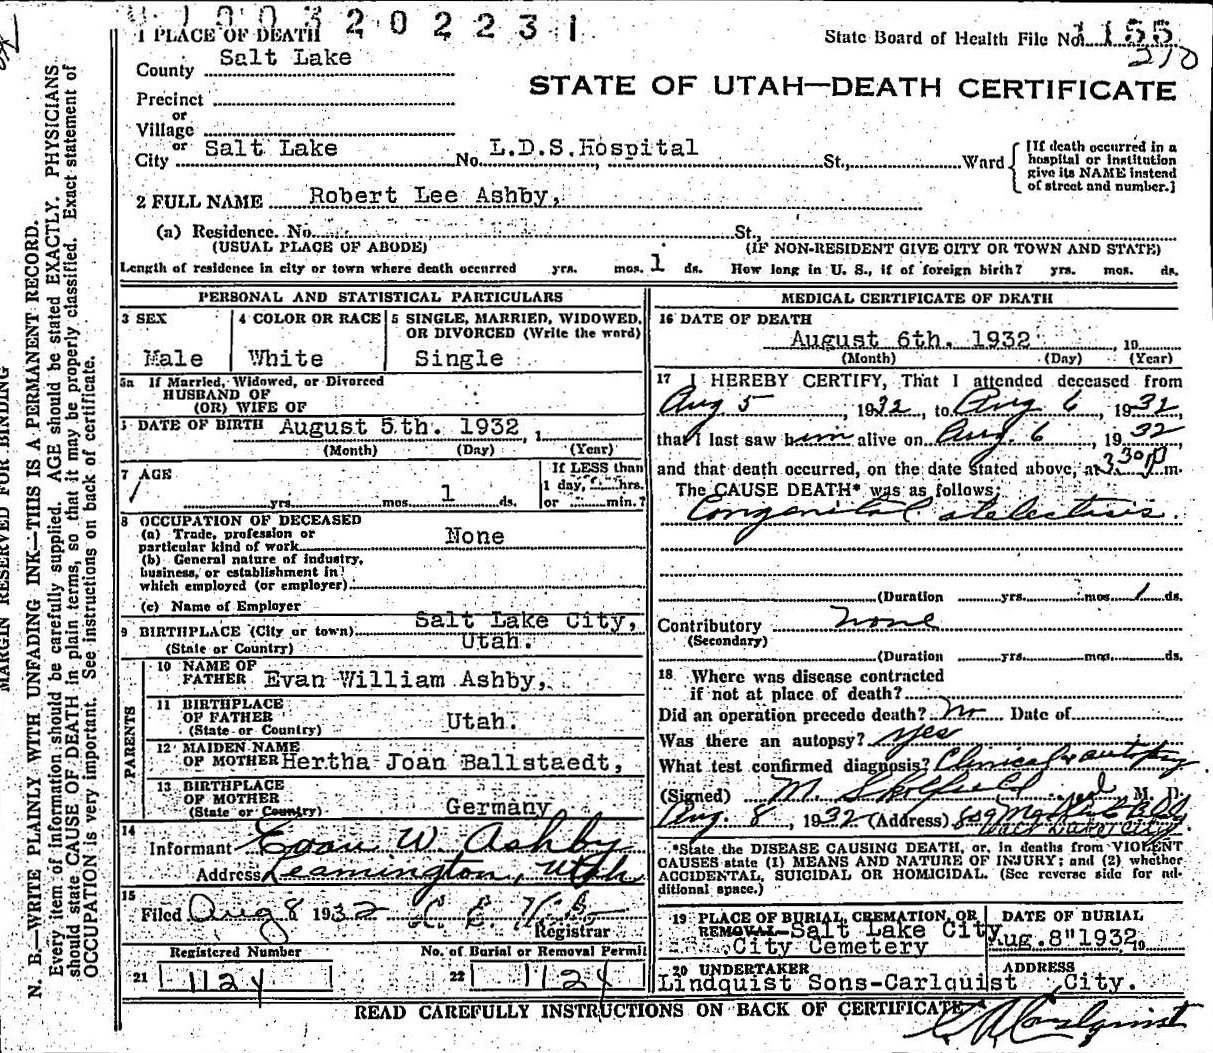 1003202231
1 PLACE OF DEATH
State Board of Health File No. 1155
210
County Salt Lake
STATE OF UTAH—DEATH CERTIFICATE
Precinct
or
Village
or
City Salt Lake No. L.D.S. Hospital St., Ward
[If death occurred in a
hospital or institution
give its NAME instead
of street and number.]
2 FULL NAME Robert Lee Ashby,
(a) Residence. No. St.,
(USUAL PLACE OF ABODE) (IF NON-RESIDENT GIVE CITY OR TOWN AND STATE)
Length of residence in city or town where death occurred yrs. mos. 1 ds. How long in U. S., if of foreign birth? yrs. mos. ds.
PERSONAL AND STATISTICAL PARTICULARS
3 SEX
Male
4 COLOR OR RACE
White
5 SINGLE, MARRIED, WIDOWED,
OR DIVORCED (Write the word)
Single
5a If Married, Widowed, or Divorced
HUSBAND OF
(OR) WIFE OF
DATE OF BIRTH August 5th. 1932, 1
(Month) (Day) (Year)
7 AGE
yrs. mos. 1 ds.
If LESS than
1 day, hrs.
or min.?
8 OCCUPATION OF DECEASED
(a) Trade, profession or
particular kind of work None
(b) General nature of industry,
business, or establishment in
which employed (or employer)
(c) Name of Employer
9 BIRTHPLACE (City or town) Salt Lake City,
(State or Country) Utah.
PARENTS
10 NAME OF
FATHER Evan William Ashby,
11 BIRTHPLACE
OF FATHER Utah.
(State or Country)
12 MAIDEN NAME
OF MOTHER Hertha Joan Ballstaedt,
13 BIRTHPLACE
OF MOTHER Germany
(State or Country)
14
Informant Evan W. Ashby
Address Leamington, Utah
15
Filed Aug 8 1932
Registrar
Registered Number
21 1124
No. of Burial or Removal Permit
22 1124
MEDICAL CERTIFICATE OF DEATH
16 DATE OF DEATH
August 6th. 1932, 19
(Month) (Day) (Year)
17 I HEREBY CERTIFY, That I attended deceased from
Aug 5, 1932, to Aug 6, 1932,
that I last saw him alive on Aug. 6, 1932,
and that death occurred, on the date stated above, at 3:30 P m.
The CAUSE DEATH* was as follows:
Congenital atelectisis.
(Duration yrs. mos. 1 ds.
Contributory None
(Secondary)
(Duration yrs. mos. ds.
18 Where was disease contracted
if not at place of death?
Did an operation precede death? No Date of
Was there an autopsy? yes
What test confirmed diagnosis? Clinical & autopsy
(Signed) M. Skolfield M. D.
Aug. 8, 1932 (Address)
*State the DISEASE CAUSING DEATH, or, in deaths from VIOLENT
CAUSES state (1) MEANS AND NATURE OF INJURY; and (2) whether
ACCIDENTAL, SUICIDAL OR HOMICIDAL. (See reverse side for ad-
ditional space.)
19 PLACE OF BURIAL, CREMATION, OR
REMOVAL Salt Lake City
City Cemetery
DATE OF BURIAL
Aug. 8" 1932, 19
20 UNDERTAKER
Lindquist Sons-Carlquist
ADDRESS
City.
READ CAREFULLY INSTRUCTIONS ON BACK OF CERTIFICATE
MARGIN RESERVED FOR BINDING
N. B.—WRITE PLAINLY WITH UNFADING INK—THIS IS A PERMANENT RECORD.
Every item of information should be carefully supplied. AGE should be stated EXACTLY. PHYSICIANS
should state CAUSE OF DEATH in plain terms, so that it may be properly classified. Exact statement of
OCCUPATION is very important. See instructions on back of certificate.